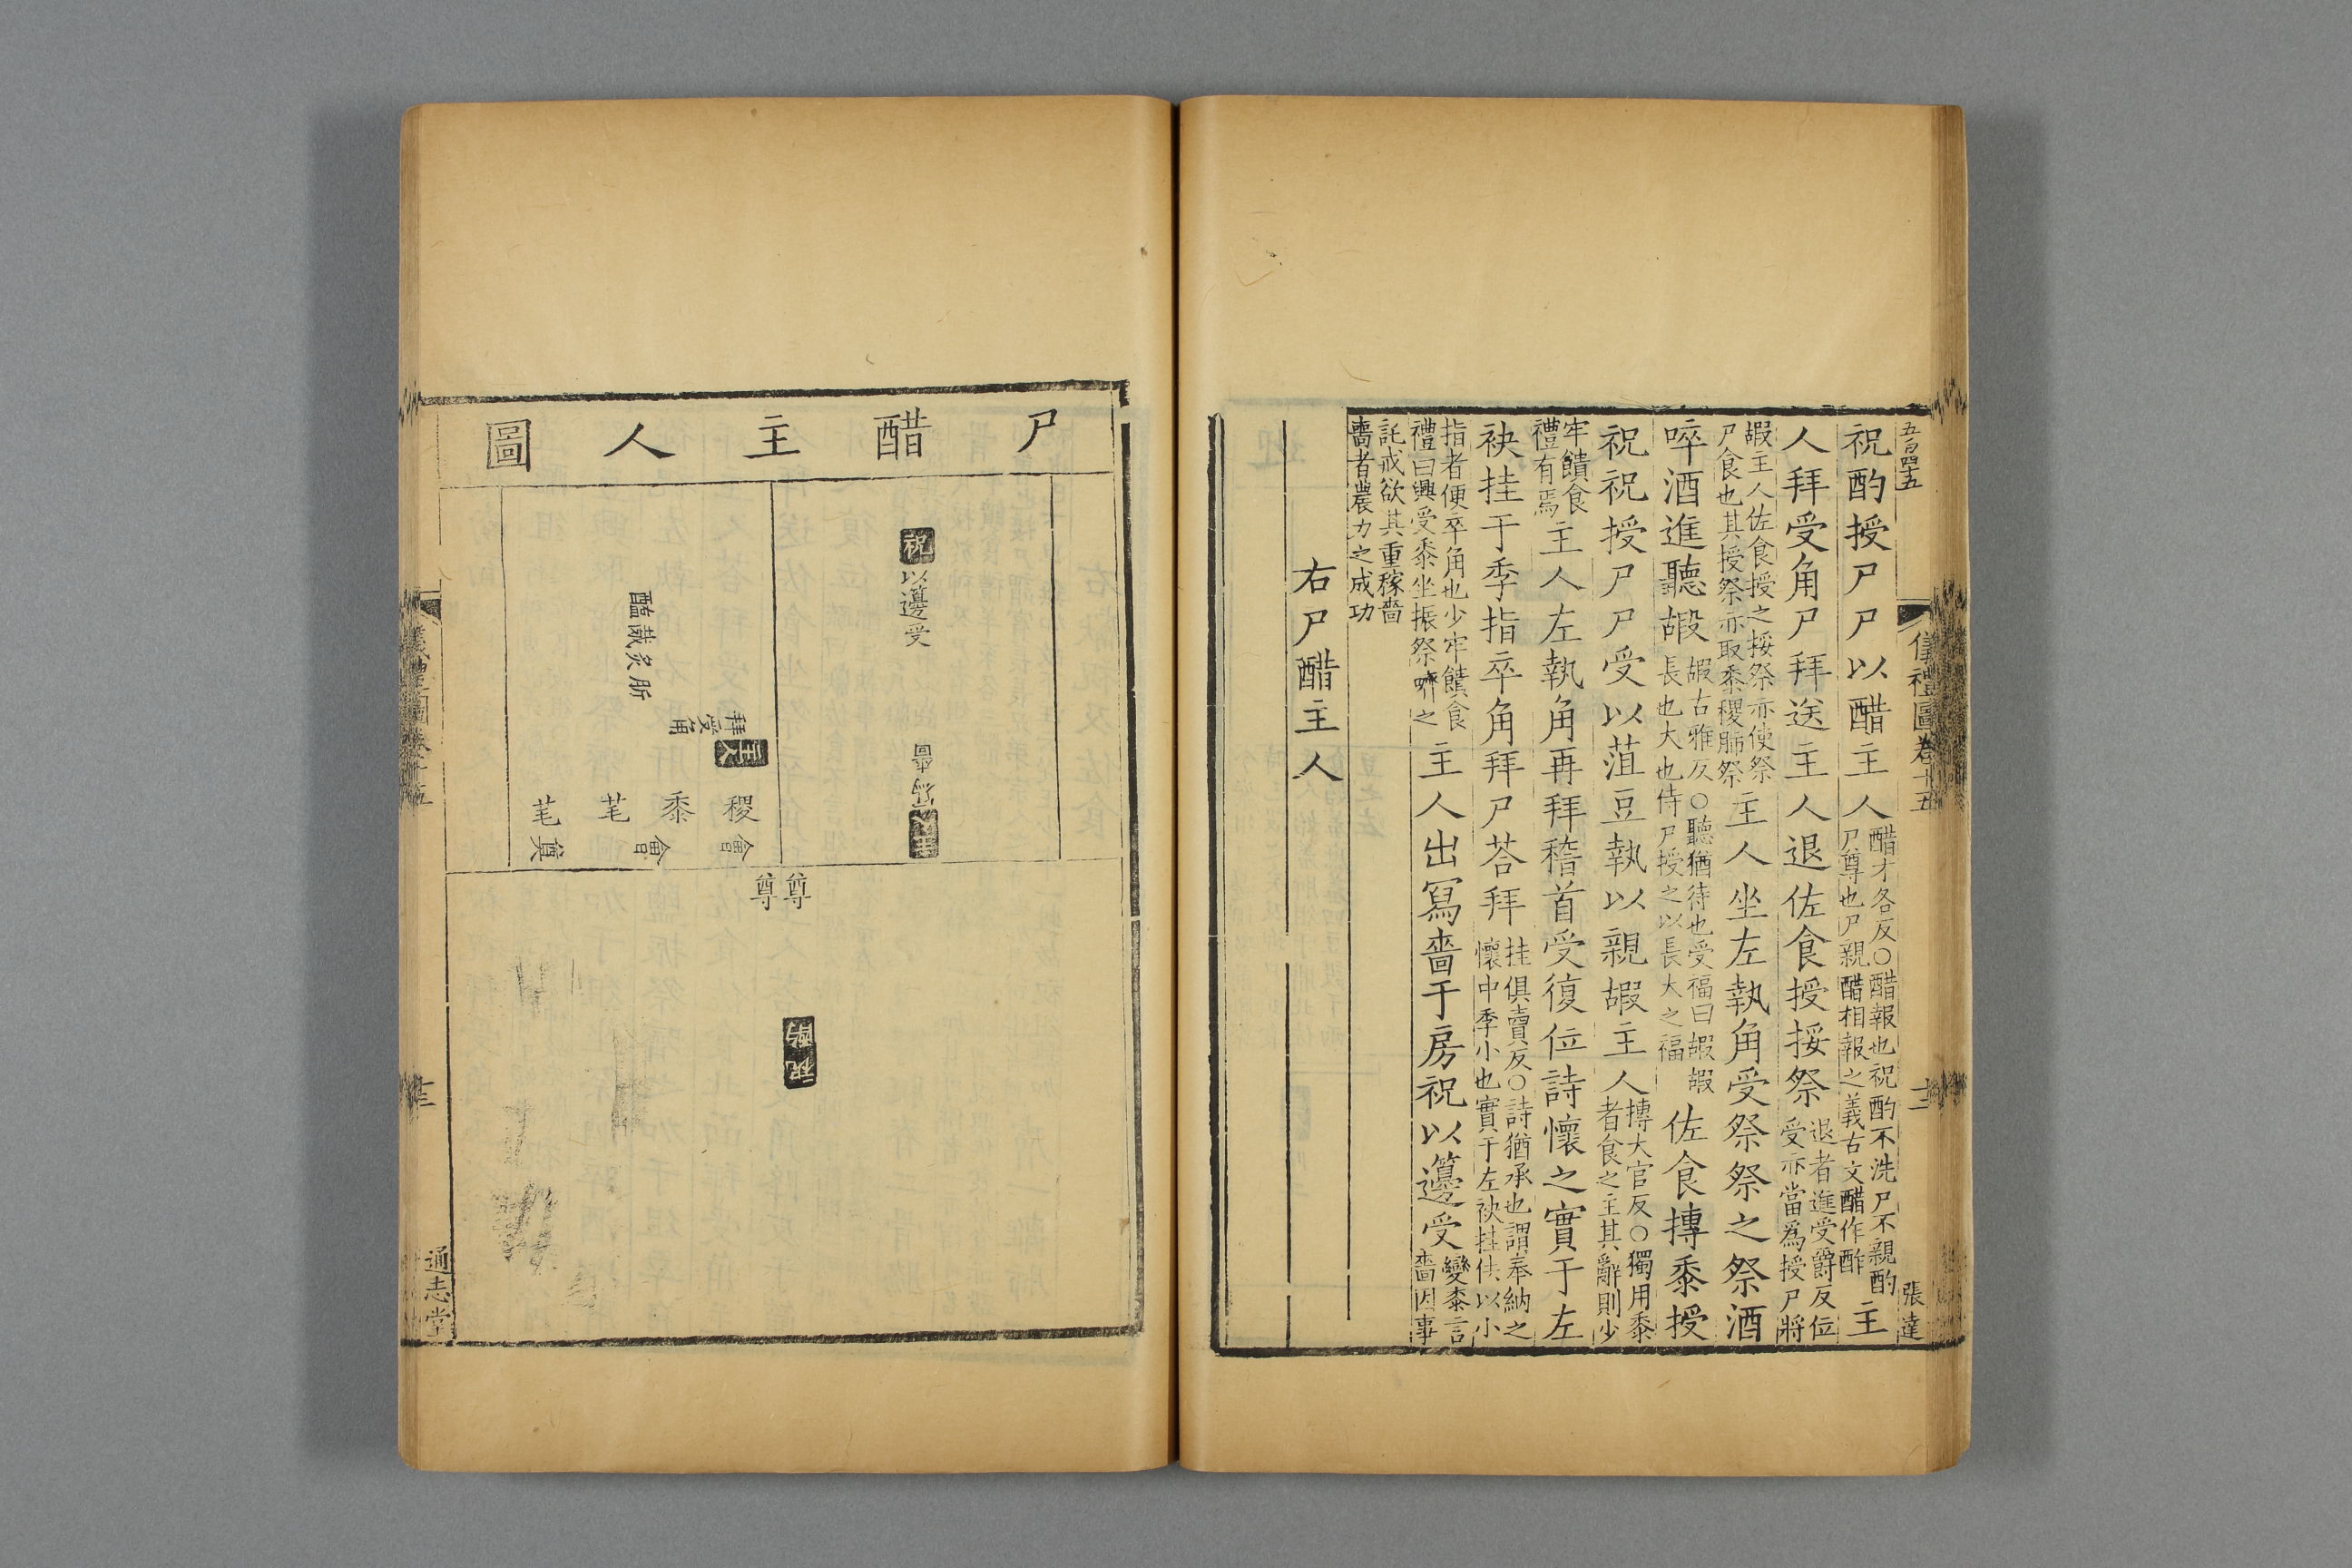 五百四十五
儀禮圖卷十五
十二
張達
祝酌授尸尸以醋主人醋才各反○醋報也祝酌不洗尸不親酌尸尊也尸親醋相報之義古文醋作酢主
人拜受角尸拜送主人退佐食授挼祭退者進受爵反位受亦當爲授尸將
嘏主人佐食授之挼祭亦使祭尸食也其授祭亦取黍稷肺祭主人坐左執角受祭祭之祭酒
啐酒進聽嘏嘏古雅反○聽猶待也受福曰嘏嘏長也大也待尸授之以長大之福佐食摶黍授
祝祝授尸尸受以菹豆執以親嘏主人摶大官反○獨用黍者食之主其辭則少
牢饋食禮有焉主人左執角再拜稽首受復位詩懷之實于左
袂挂于季指卒角拜尸荅拜挂俱賣反○詩猶承也謂奉納之懷中季小也實于左袂挂袪以小
指者便卒角也少牢饋食禮曰興受黍坐振祭嚌之主人出寫嗇于房祝以籩受變黍言嗇因事
託戒欲其重稼嗇嗇者農力之成功
右尸醋主人
尸醋主人圖
祝以籩受
主人
醢胾炙肵
拜受角
主人
稷黍芼芼
會會
尊尊
祝酌
通志堂